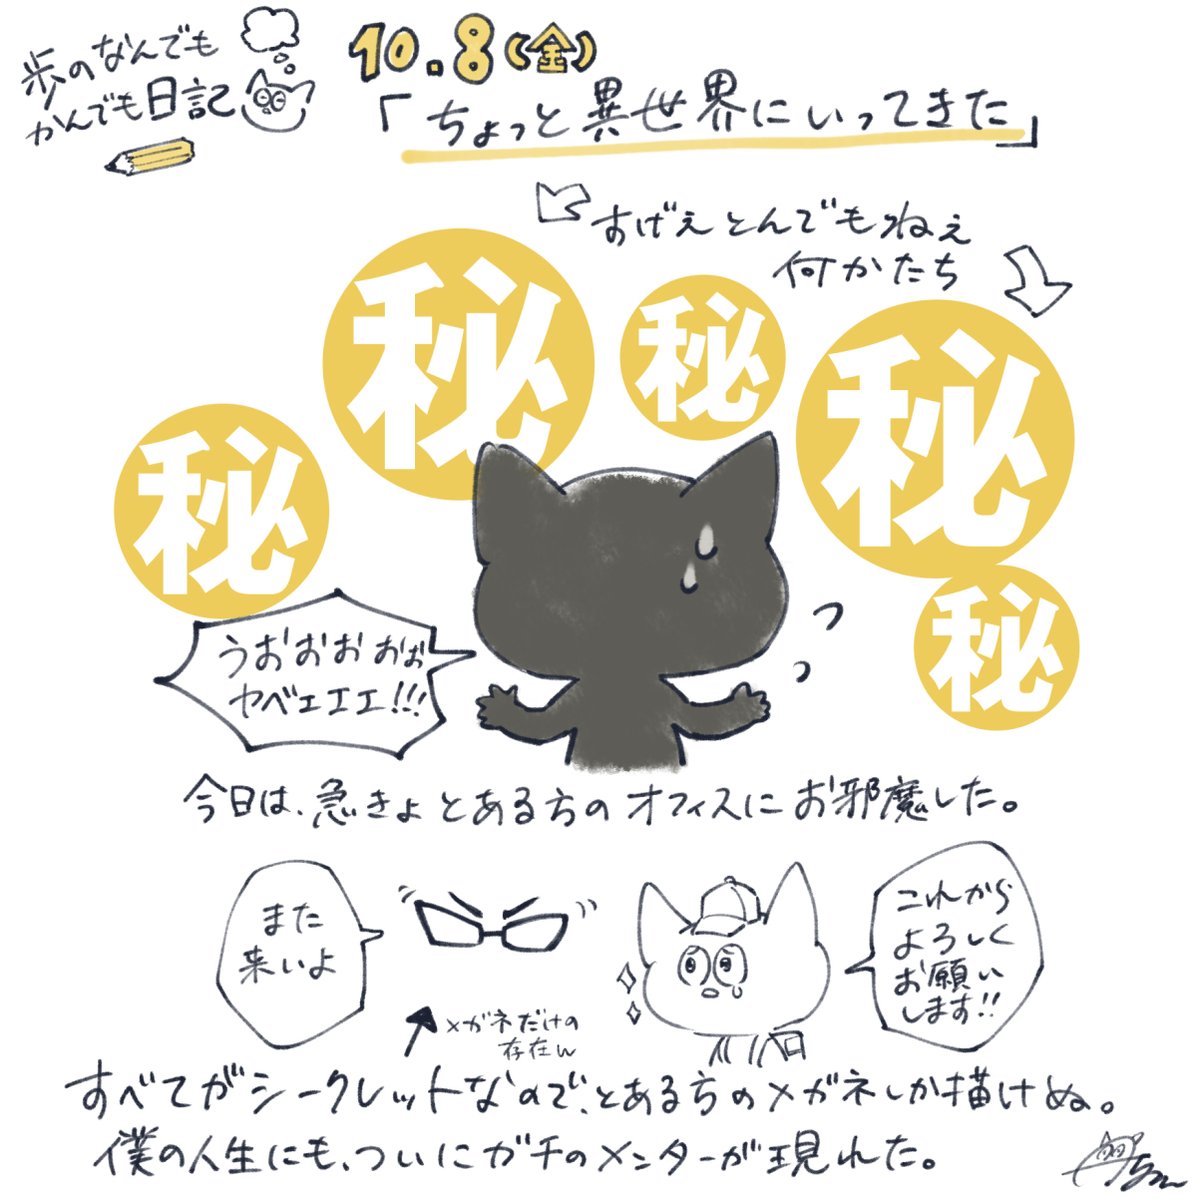 歩のなんでも
かんでも日記
10.8(金)
「ちょっと異世界にいってきた」
すげぇとんでもねぇ
何かたち
秘
秘
秘
秘
秘
うおおおおぉ
ヤベェエエ!!!
今日は、急きょとある方のオフィスにお邪魔した。
また
来いよ
メガネだけの
存在w
これから
よろしく
お願い
します!!
すべてがシークレットなので、とある方のメガネしか描けぬ。
僕の人生にも、ついにガチのメンターが現れた。